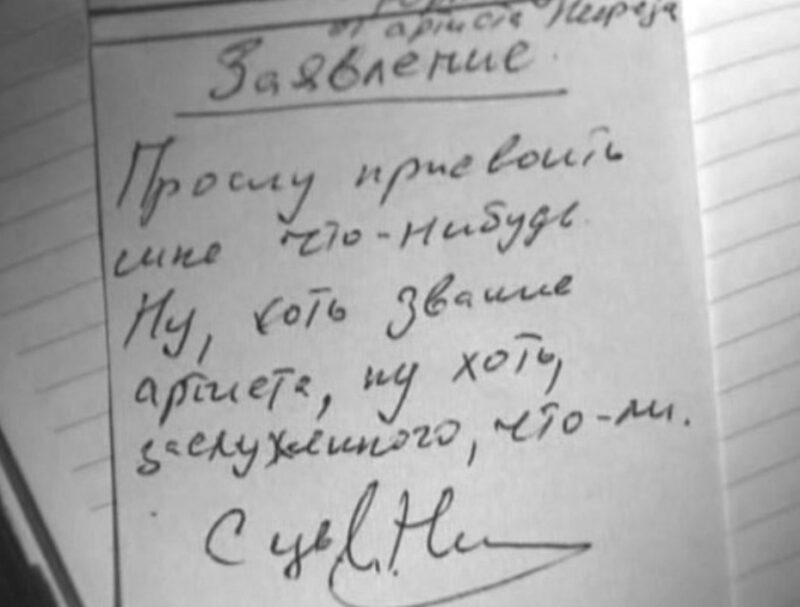 от артиста Нигреја
Заявление
Прошу присвоить
мне что-нибудь.
Ну, хоть звание
артиста, ну хоть,
заслуженного, что-ли.
С ув.